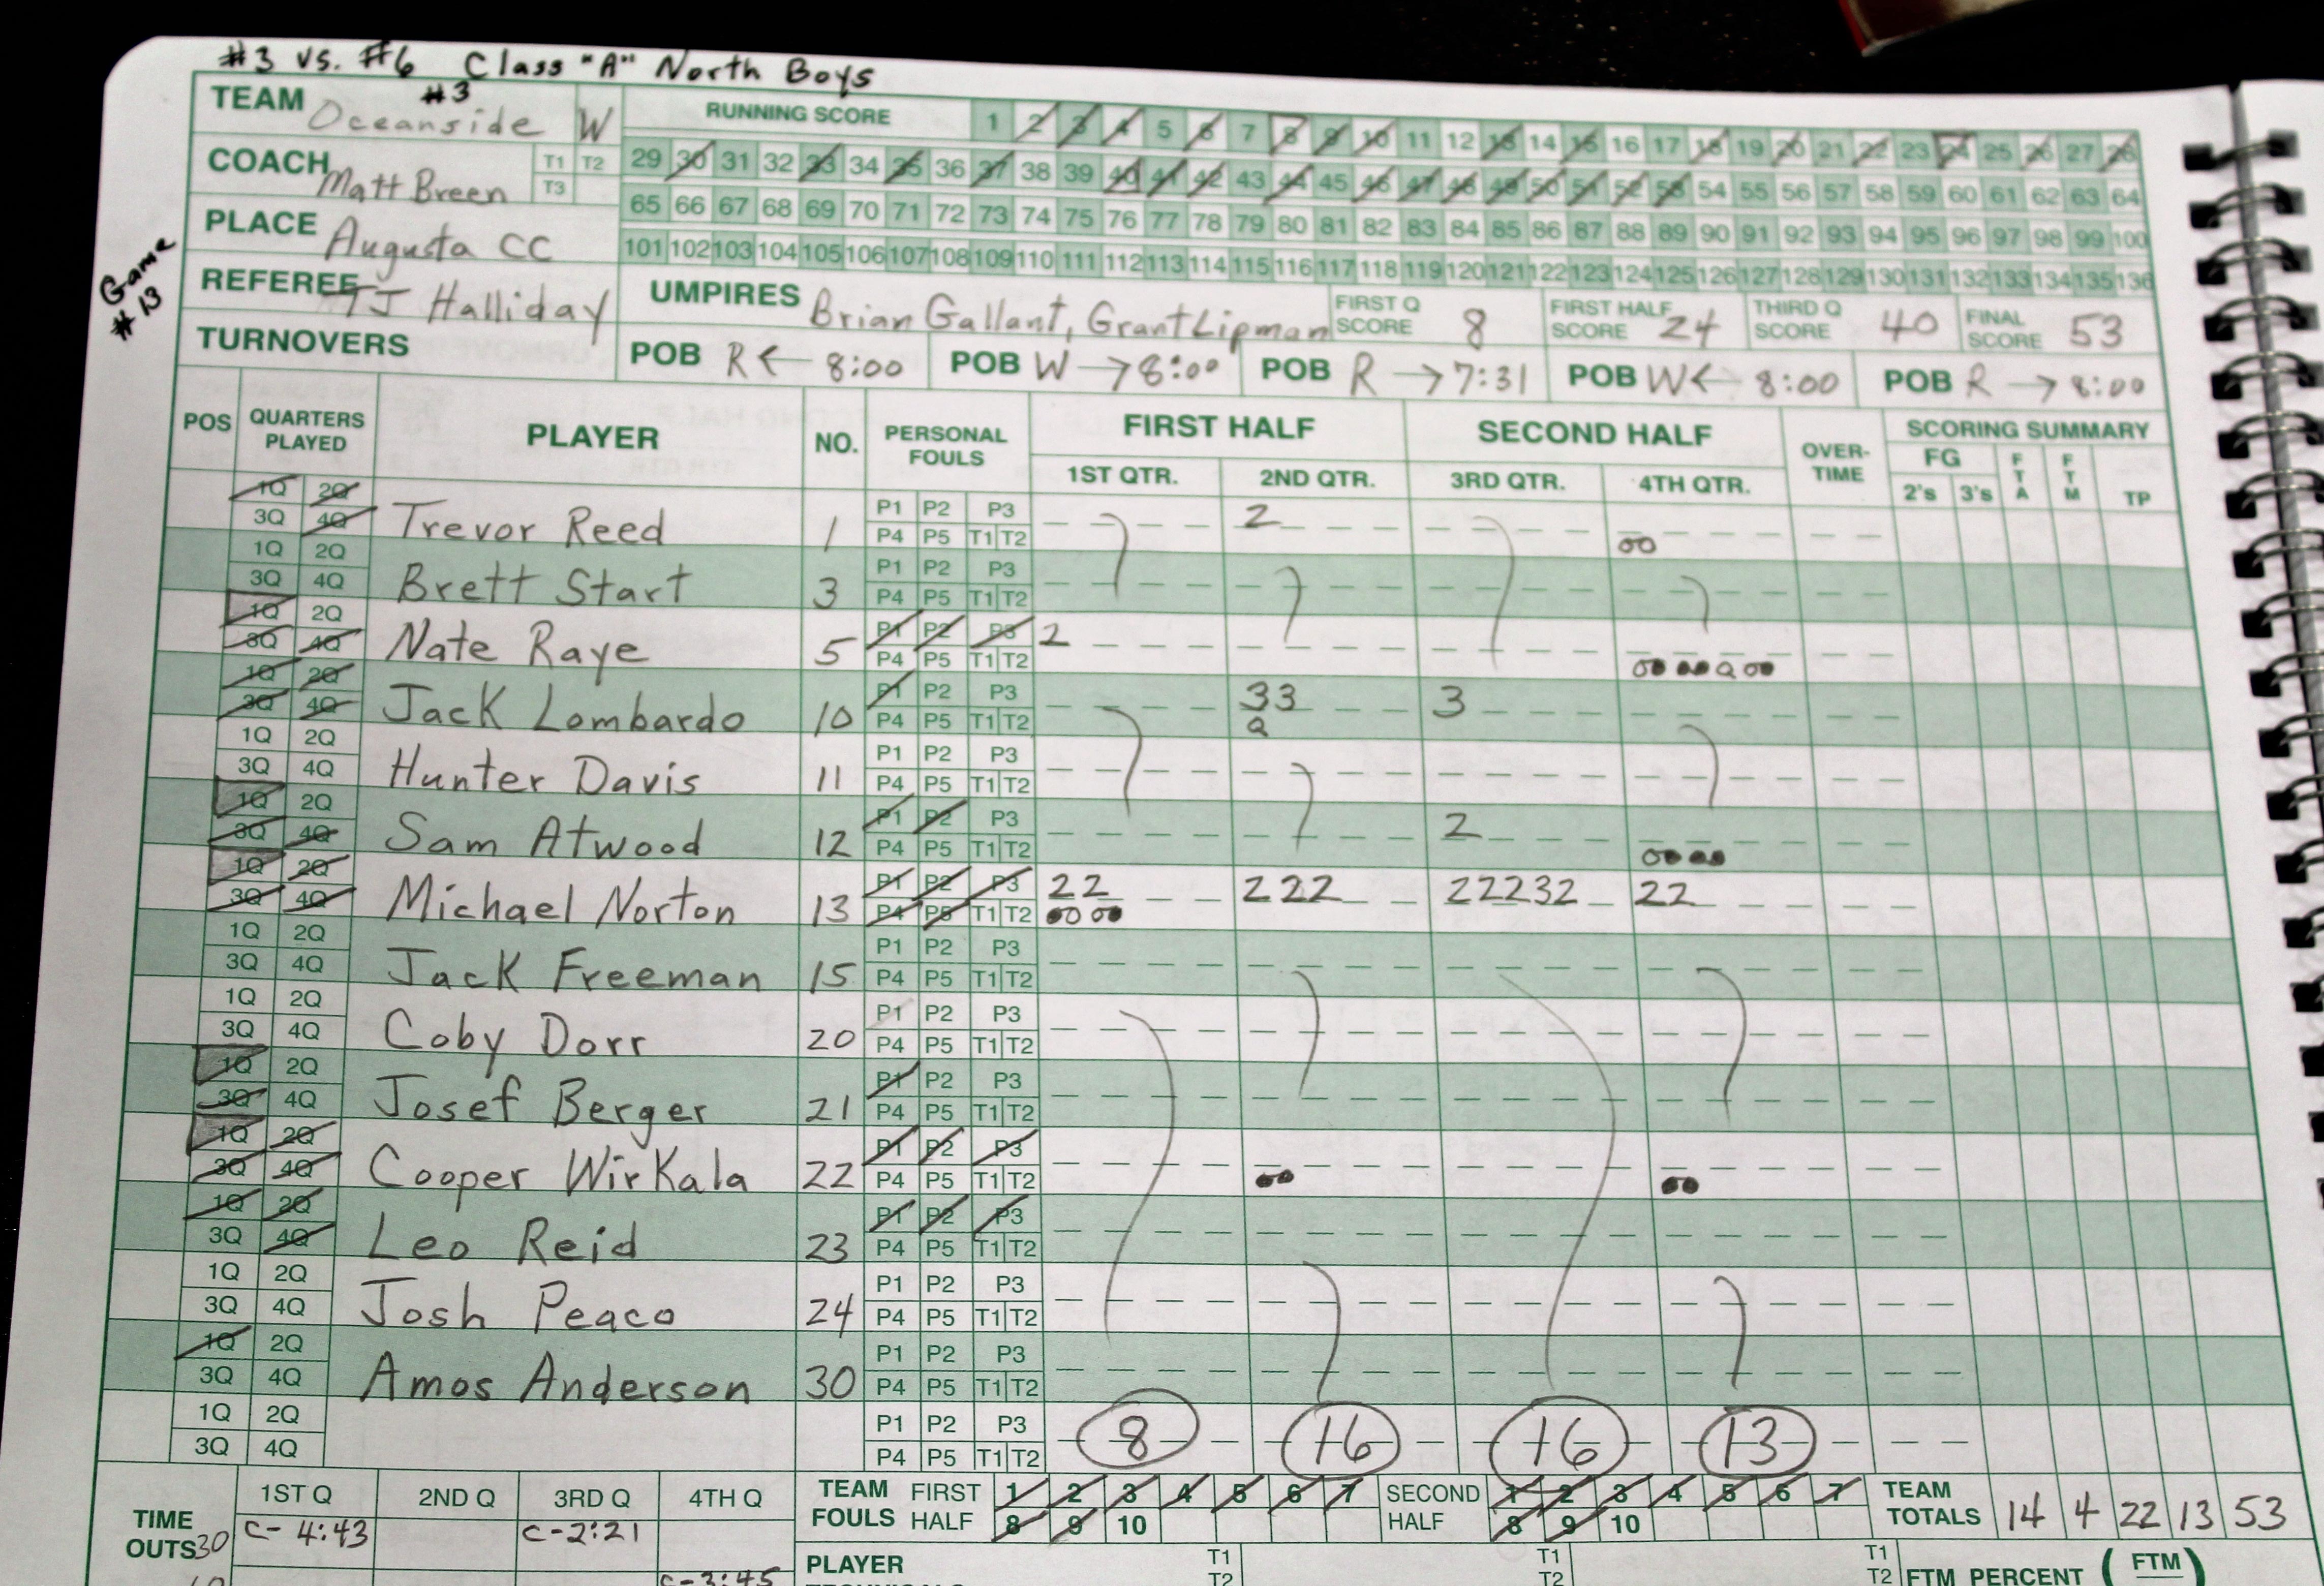 #3 vs. #6 Class "A" North Boys
#3
TEAM Oceanside W RUNNING SCORE 1 2 3 4 5 6 7 8 9 10 11 12 13 14 15 16 17 18 19 20 21 22 23 24 25 26 27 28
COACH Matt Breen T1 T2 T3 29 30 31 32 33 34 35 36 37 38 39 40 41 42 43 44 45 46 47 48 49 50 51 52 53 54 55 56 57 58 59 60 61 62 63 64
65 66 67 68 69 70 71 72 73 74 75 76 77 78 79 80 81 82 83 84 85 86 87 88 89 90 91 92 93 94 95 96 97 98 99 100
PLACE Augusta CC 101 102 103 104 105 106 107 108 109 110 111 112 113 114 115 116 117 118 119 120 121 122 123 124 125 126 127 128 129 130 131 132 133 134 135 136
Game #13
REFEREE TJ Halliday UMPIRES Brian Gallant, Grant Lipman FIRST Q SCORE 8 FIRST HALF SCORE 24 THIRD Q SCORE 40 FINAL SCORE 53
TURNOVERS POB R ← 8:00 POB W → 8:00 POB R → 7:31 POB W ← 8:00 POB R → 8:00
POS QUARTERS PLAYED PLAYER NO. PERSONAL FOULS FIRST HALF SECOND HALF OVER-TIME SCORING SUMMARY
1ST QTR. 2ND QTR. 3RD QTR. 4TH QTR. FG 2's 3's FTA FTM TP
1Q 2Q P1 P2 P3
3Q 4Q Trevor Reed 1 P4 P5 T1 T2 2
1Q 2Q P1 P2 P3
3Q 4Q Brett Start 3 P4 P5 T1 T2
1Q 2Q P1 P2 P3
3Q 4Q Nate Raye 5 P4 P5 T1 T2 2
1Q 2Q P1 P2 P3
3Q 4Q Jack Lombardo 10 P4 P5 T1 T2 33 3
1Q 2Q P1 P2 P3
3Q 4Q Hunter Davis 11 P4 P5 T1 T2
1Q 2Q P1 P2 P3
3Q 4Q Sam Atwood 12 P4 P5 T1 T2 2
1Q 2Q P1 P2 P3
3Q 4Q Michael Norton 13 P4 P5 T1 T2 22 222 22232 22
1Q 2Q P1 P2 P3
3Q 4Q Jack Freeman 15 P4 P5 T1 T2
1Q 2Q P1 P2 P3
3Q 4Q Coby Dorr 20 P4 P5 T1 T2
1Q 2Q P1 P2 P3
3Q 4Q Josef Berger 21 P4 P5 T1 T2
1Q 2Q P1 P2 P3
3Q 4Q Cooper Wirkala 22 P4 P5 T1 T2
1Q 2Q P1 P2 P3
3Q 4Q Leo Reid 23 P4 P5 T1 T2
1Q 2Q P1 P2 P3
3Q 4Q Josh Peaco 24 P4 P5 T1 T2
1Q 2Q P1 P2 P3
3Q 4Q Amos Anderson 30 P4 P5 T1 T2
1Q 2Q P1 P2 P3
3Q 4Q P4 P5 T1 T2 8 16 16 13
TIME OUTS 30 1ST Q 2ND Q 3RD Q 4TH Q TEAM FOULS FIRST HALF 1 2 3 4 5 6 7 8 9 10 SECOND HALF 1 2 3 4 5 6 7 8 9 10 TEAM TOTALS 14 4 22 13 53
C- 4:43 C-2:21
C-3:45 PLAYER T1 T2 T1 T2 T1 T2 FTM PERCENT (FTM)